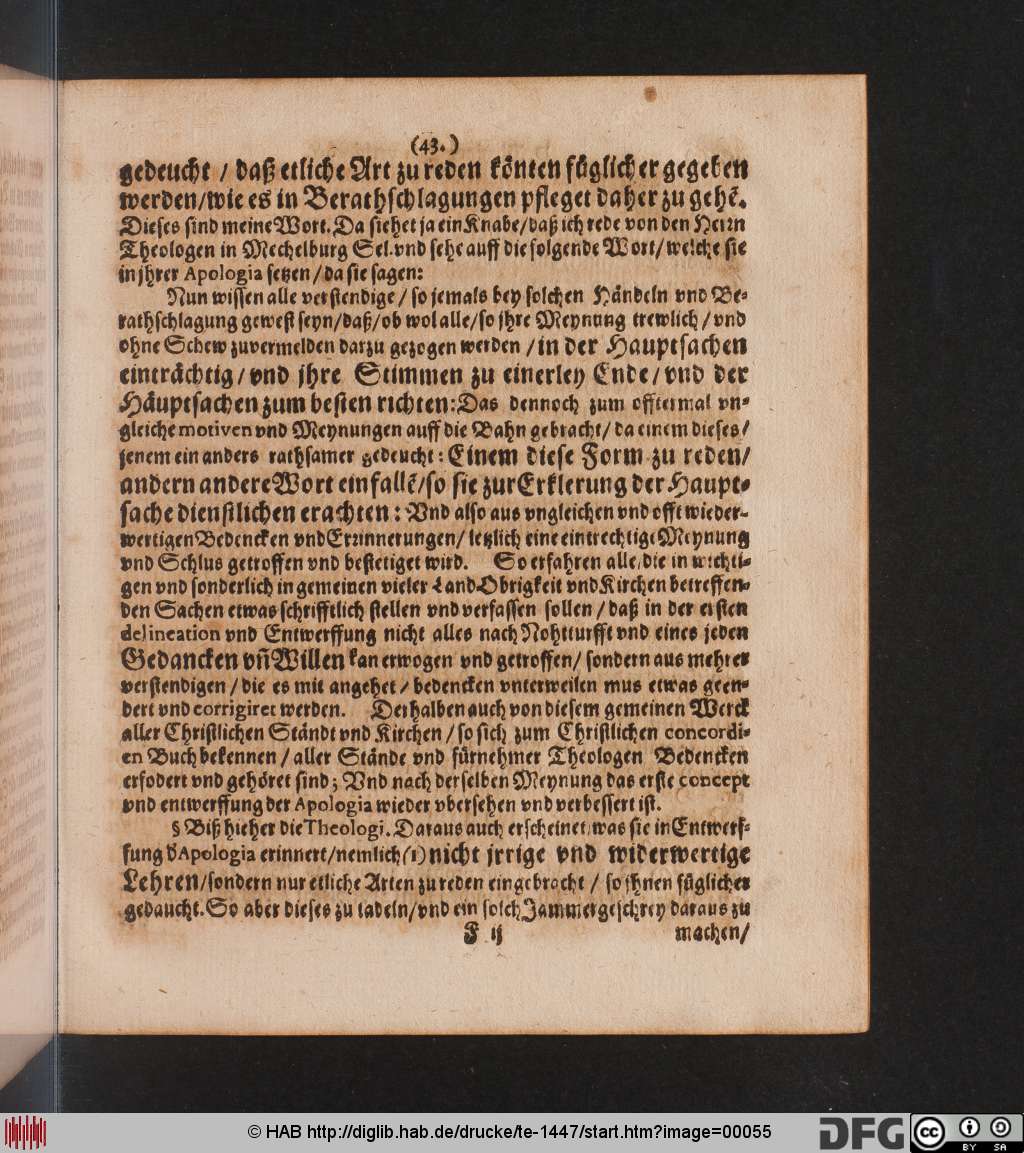 (43.)
gedeucht / daß etliche Art zu reden könten füglicher gegeben
werden/wie es in Berathschlagungen pfleget daher zu gehẽ.
Dieses sind meine Wort. Da siehet ja ein Knabe/daß ich rede von den Herrn
Theologen in Mechelburg Sel. vnd sehe auff die folgende Wort/ welche sie
in jhrer Apologia setzen/da sie sagen:
Nun wissen alle verstendige / so jemals bey solchen Händeln vnd Be-
rathschlagung gewest seyn/daß/ob wol alle/so jhre Meynung trewlich / vnd
ohne Schew zuvermelden darzu gezogen werden / in der Hauptsachen
einträchtig/vnd jhre Stimmen zu einerley Ende/vnd der
Häuptsachen zum besten richten: Das dennoch zum offtermal vn-
gleiche motiven vnd Meynungen auff die Bahn gebracht/ da einem dieses/
jenem ein anders rathsamer gedeucht: Einem diese Form zu reden/
andern andere Wort einfallẽ/so sie zur Erklerung der Haupt-
sache dienstlichen erachten: Vnd also aus vngleichen vnd offt wieder-
wertigen Bedencken vnd Erinnerungen/ letzlich eine eintrechtige Meynung
vnd Schlus getroffen vnd bestetiget wird. So erfahren alle/die in wichti-
gen vnd sonderlich in gemeinen vieler Land Obrigkeit vnd Kirchen betreffen-
den Sachen etwas schrifftlich stellen vnd verfassen sollen / daß in der ersten
delineation vnd Entwerffung nicht alles nach Nohtturfft vnd eines jeden
Gedancken vñ Willen kan erwogen vnd getroffen/ sondern aus mehrer
verstendigen / die es mit angehet / bedencken vnterweilen mus etwas geen-
dert vnd corrigiret werden. Derhalben auch von diesem gemeinen Werck
aller Christlichen Ständt vnd Kirchen / so sich zum Christlichen concordi-
en Buch bekennen / aller Stände vnd fürnehmer Theologen Bedencken
erfodert vnd gehöret sind; Vnd nach derselben Meynung das erste concept
vnd entwerffung der Apologia wieder vbersehen vnd verbessert ist.
§ Biß hieher die Theologi. Daraus auch erscheinet/was sie in Entwerf-
fung d' Apologia erinnert/nemlich (1) nicht jrrige vnd widerwertige
Lehren/sondern nur etliche Arten zu reden eingebracht / so jhnen füglicher
gedaucht. So aber dieses zu tadeln/vnd ein solch Jammergeschrey daraus zu
F ij machen/
© HAB http://diglib.hab.de/drucke/te-1447/start.htm?image=00055
DFG
cc BY SA